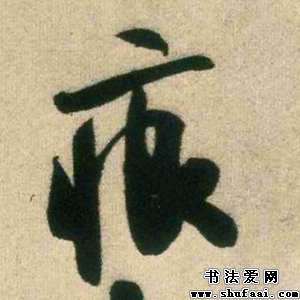 痕
书法爱网
www.shufaai.com